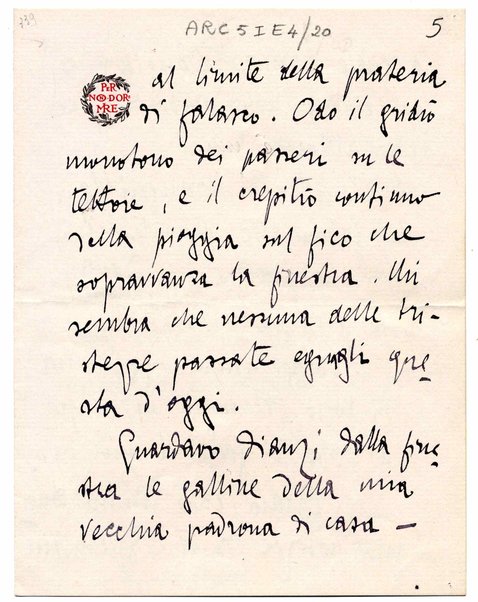 339
ARC 5 I E 4/20
5
PER
NON DOR
MIRE
al limite della prateria
di falasco. Odo il gridìo
monotono dei passeri su le
tettoie, e il crepitìo continuo
della pioggia sul fico che
sopravvanza la finestra. Mi
sembra che nessuna delle tri-
stezze passate eguagli que-
sta d'oggi.
Guardavo dianzi dalla fine-
stra le galline della mia
vecchia padrona di casa –